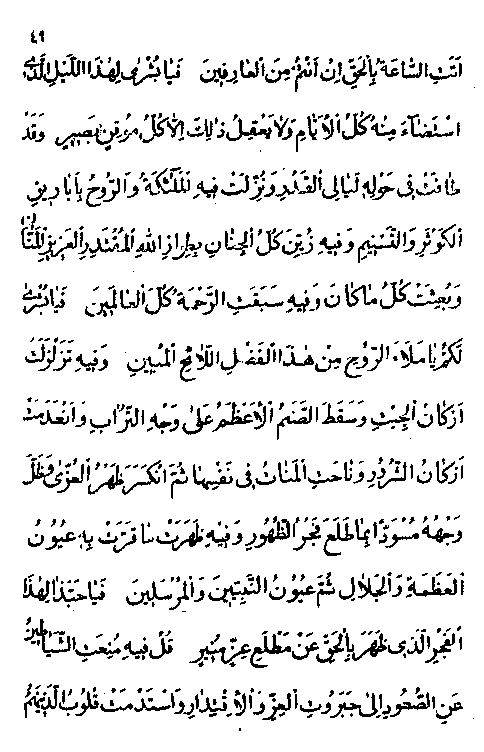 ٤٩
اَتَتِ السَّاعَةُ بِالْحَقِّ اِنْ اَنْتُمْ مِنَ الْعَارِفِينَ فَيَا بُشْرٰى لِهٰذَا اللَّيْلِ الَّذِى
اسْتَضَآءَ مِنْهُ كُلُّ الْاَيَّامِ وَلَا يَعْقِلُ ذٰلِكَ اِلَّا كُلُّ مُوْقِنٍ بَصِيرٍ وَقَدْ
طَافَتْ فِى حَوْلِهِ لَيَالِى الْقَدْرِ وَنُزِّلَتْ فِيهِ الْمَلٰٓئِكَةُ وَالرُّوحُ بِاَبَارِيقِ
الْكَوْثَرِ وَالتَّسْنِيمِ وَفِيهِ زُيِّنَ كُلُّ الْجِنَانِ بِطِرَازِ اللّٰهِ الْمُقْتَدِرِ الْعَزِيزِ الْمَنَّانِ
وَبُعِثَتْ كُلُّ مَا كَانَ وَفِيهِ سَبَقَتِ الرَّحْمَةُ كُلَّ الْعَالَمِينَ فَيَا بُشْرٰى
لَكُمْ يَا مَلَاءَ الرُّوحِ مِنْ هٰذَا الْفَضْلِ اللَّائِحِ الْمُبِينِ وَفِيهِ تَزَلْزَلَتْ
اَرْكَانُ الْجِبْتِ وَسَقَطَ الصَّنَمُ الْاَعْظَمُ عَلٰى وَجْهِ التُّرَابِ وَانْعَدَمَتْ
اَرْكَانُ الشُّرُورِ وَنَاحَتِ الْمَنَاتُ فِى نَفْسِهَا ثُمَّ انْكَسَرَ ظَهْرُ الْعُزّٰى وَظَلَّ
وَجْهُهُ مُسْوَدًّا بِمَا طَلَعَ فَجْرُ الظُّهُورِ وَفِيهِ ظَهَرَتْ مَا قَرَّتْ بِهِ عُيُونُ
الْعَظَمَةِ وَالْجَلَالِ ثُمَّ عُيُونُ النَّبِيِّينَ وَالْمُرْسَلِينَ فَيَا حَبَّذَا لِهٰذَا
الْفَجْرِ الَّذِى ظَهَرَ بِالْحَقِّ عَنْ مَطْلَعِ عِزٍّ مُنِيرٍ قُلْ فِيهِ مُنِعَتِ الشَّيَاطِينُ
عَنِ الصُّعُودِ اِلٰى جَبَرُوتِ الْعِزِّ وَالْاِقْتِدَارِ وَاسْتَدْمَتْ قُلُوبُ الَّذِينَهُمُ